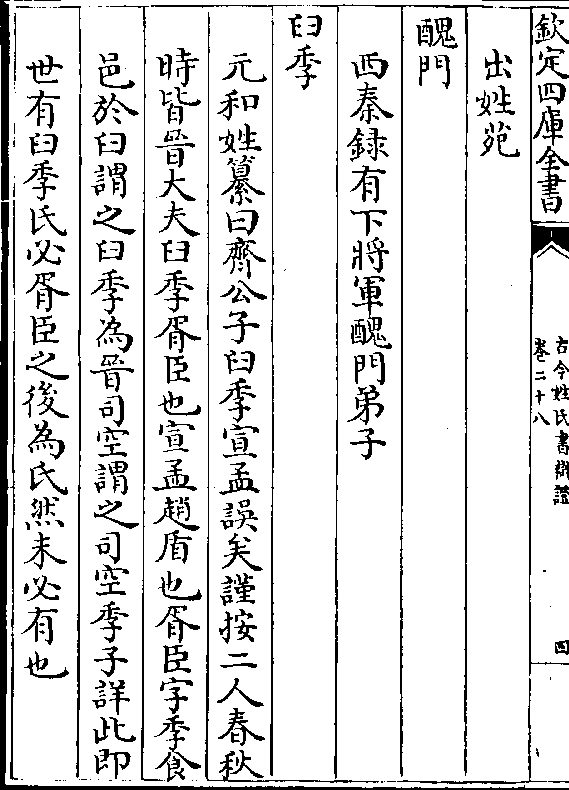 欽定四庫全書
古今姓氏書辯證
卷二十八
四
出姓苑
醜門
西秦録有下將軍醜門弟子
臼季
元和姓纂曰齊公子臼季宣孟誤矣謹按二人春秋
時皆晉大夫臼季胥臣也宣孟趙盾也胥臣字季食
邑於臼謂之臼季為晉司空謂之司空季子詳此即
世有臼季氏必胥臣之後為氏然未必有也